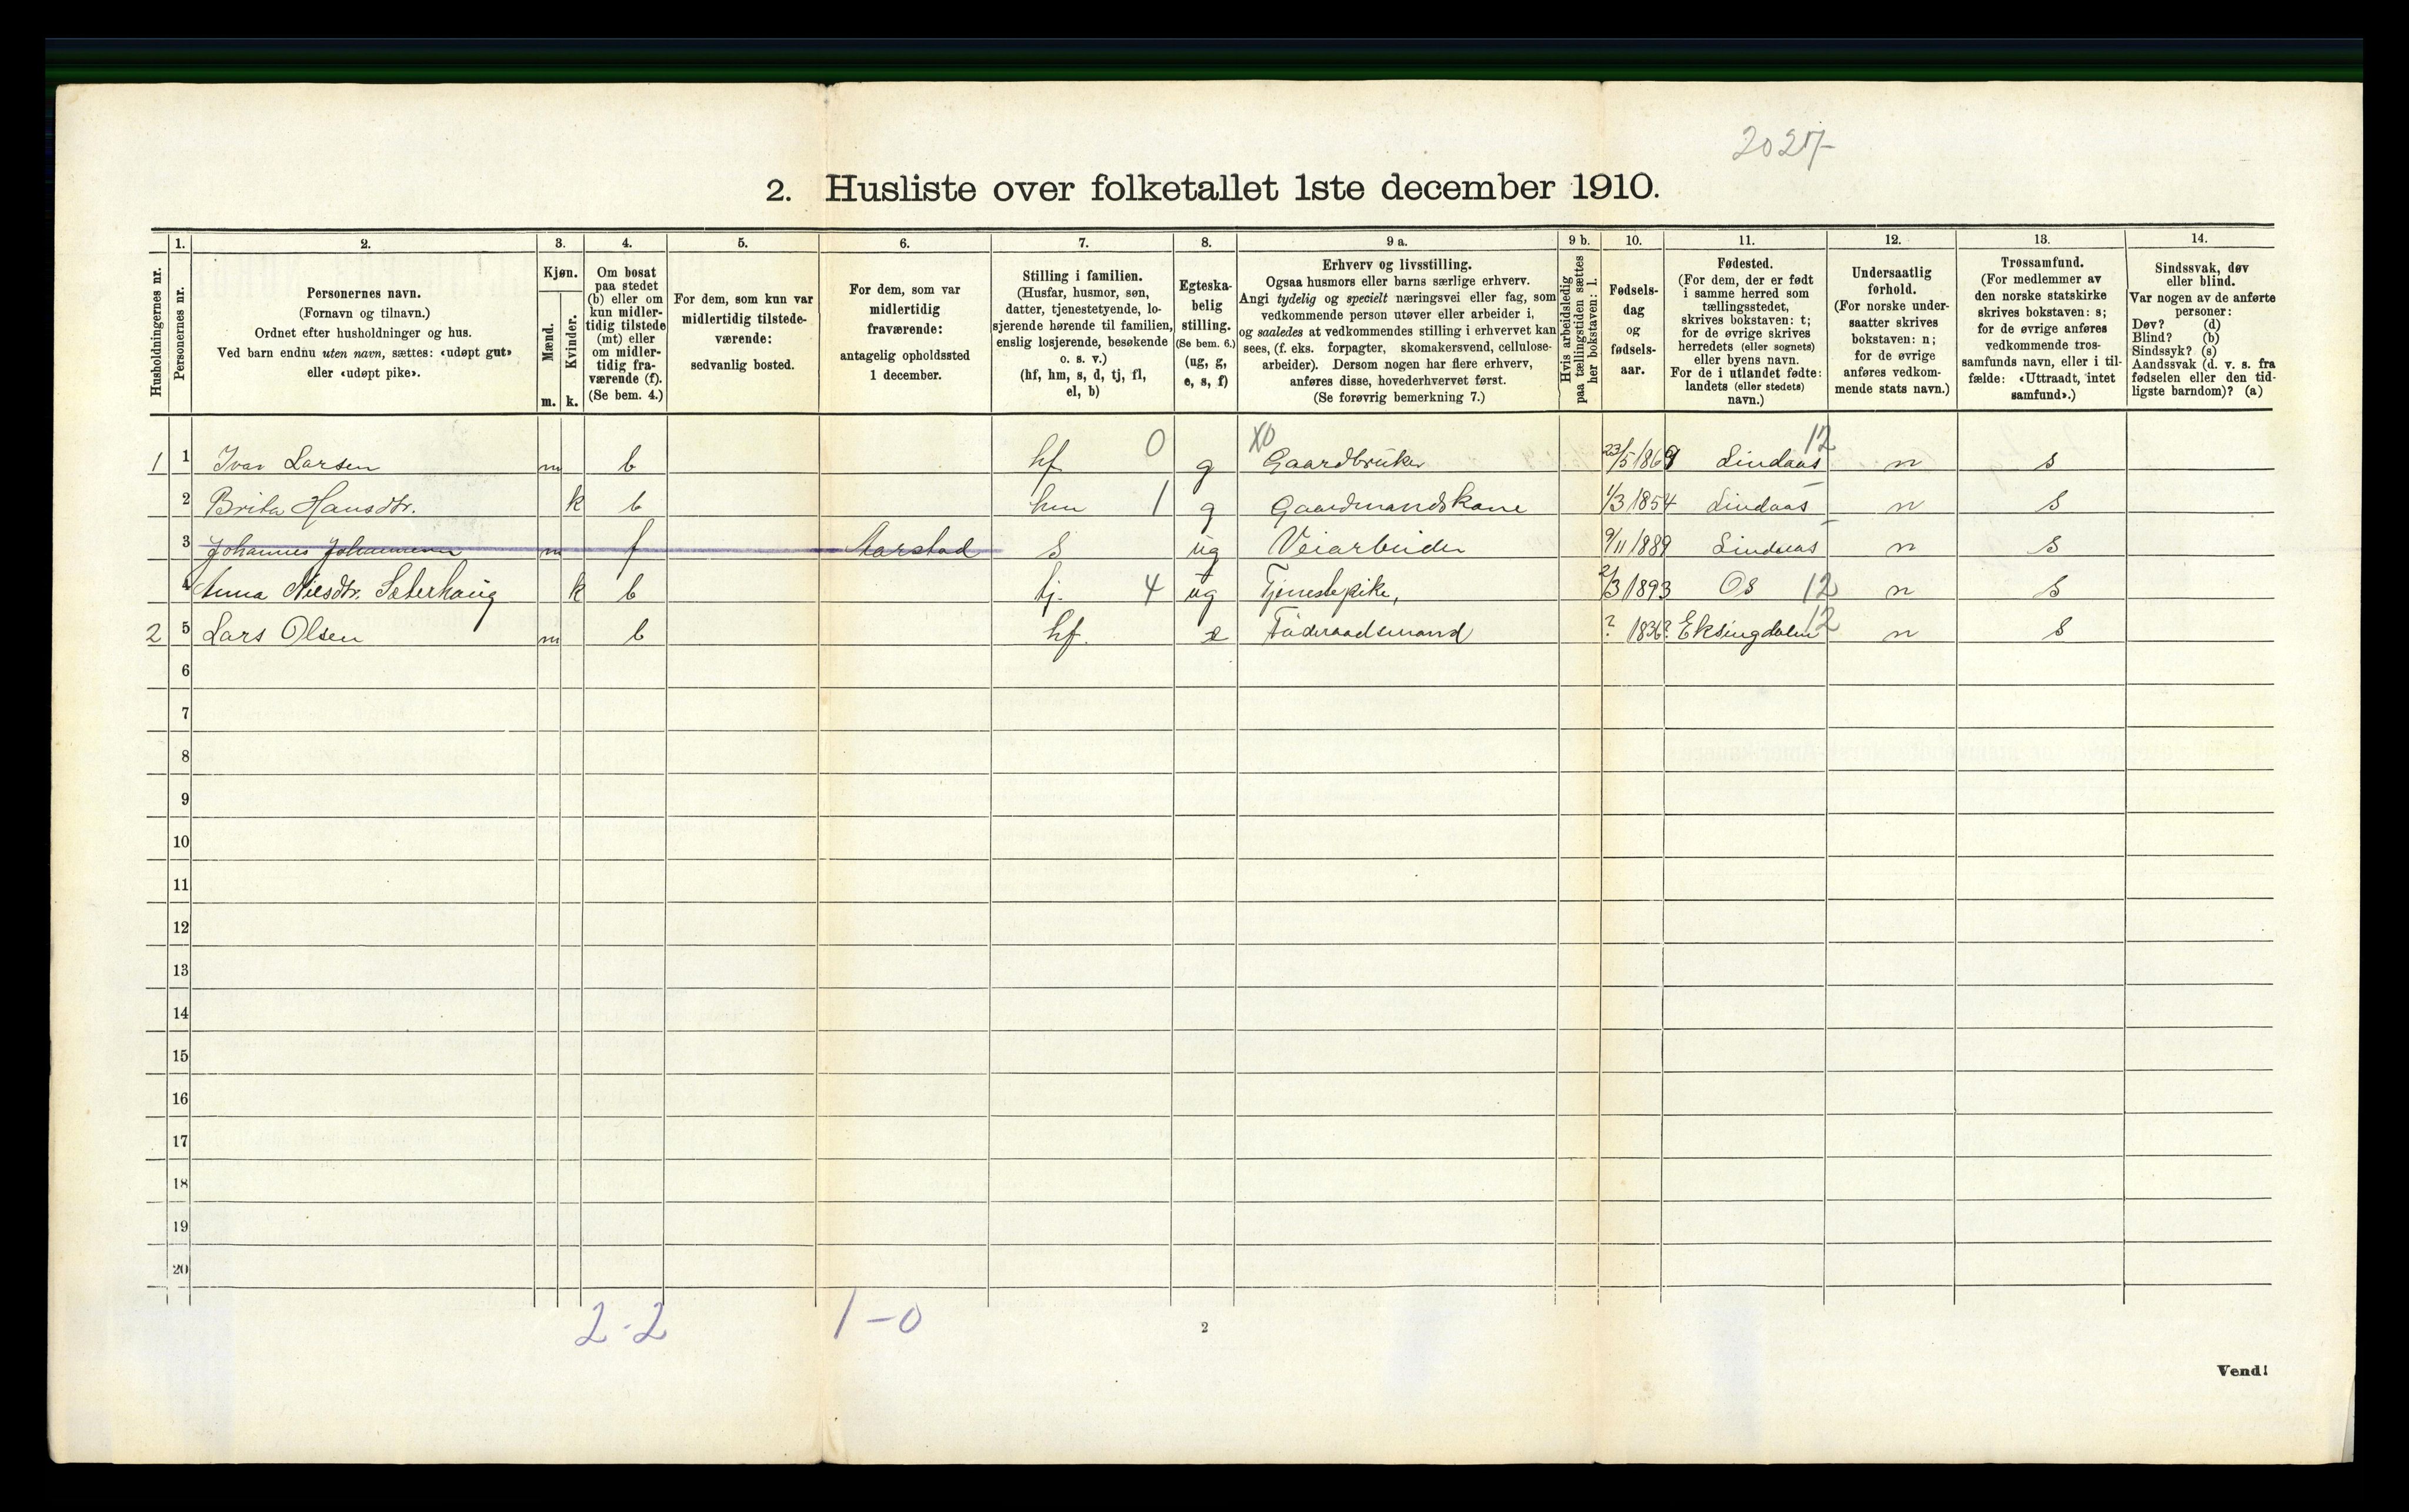 2027-
2. Husliste over folketallet 1ste december 1910.
Husholdningernes nr.
1.
Personernes nr.
2.
Personernes navn.
(Fornavn og tilnavn.)
Ordnet efter husholdninger og hus.
Ved barn endnu uten navn, sættes: «udøpt gut»
eller «udøpt pike».
3.
Kjøn.
Mænd.
Kvinder.
m. k.
4.
Om bosat
paa stedet
(b) eller om
kun midler-
tidig tilstede
(mt) eller
om midler-
tidig fra-
værende (f).
(Se bem. 4.)
5.
For dem, som kun var
midlertidig tilstede-
værende:
sedvanlig bosted.
6.
For dem, som var
midlertidig
fraværende:
antagelig opholdssted
1 december.
7.
Stilling i familien.
(Husfar, husmor, søn,
datter, tjenestetyende, lo-
sjerende hørende til familien,
enslig losjerende, besøkende
o. s. v.)
(hf, hm, s, d, tj, fl,
el, b)
8.
Egteska-
belig
stilling.
(Se bem. 6.)
(ug, g,
e, s, f)
9 a.
Erhverv og livsstilling.
Ogsaa husmors eller barns særlige erhverv.
Angi tydelig og specielt næringsvei eller fag, som
vedkommende person utøver eller arbeider i,
og saaledes at vedkommendes stilling i erhvervet kan
sees, (f. eks. forpagter, skomakersvend, cellulose-
arbeider). Dersom nogen har flere erhverv,
anføres disse, hovederhvervet først.
(Se forøvrig bemerkning 7.)
9 b.
Hvis arbeidsledig
paa tællingstiden sættes
her bokstaven: l.
10.
Fødsels-
dag
og
fødsels-
aar.
11.
Fødested.
(For dem, der er født
i samme herred som
tællingsstedet,
skrives bokstaven: t;
for de øvrige skrives
herredets (eller sognets)
eller byens navn.
For de i utlandet fødte:
landets (eller stedets)
navn.)
12.
Undersaatlig
forhold.
(For norske under-
saatter skrives
bokstaven: n;
for de øvrige
anføres vedkom-
mende stats navn.)
13.
Trossamfund.
(For medlemmer av
den norske statskirke
skrives bokstaven: s;
for de øvrige anføres
vedkommende tros-
samfunds navn, eller i til-
fælde: «Uttraadt, intet
samfund».)
14.
Sindssvak, døv
eller blind.
Var nogen av de anførte
personer:
Døv? (d)
Blind? (b)
Sindssyk? (s)
Aandssvak (d. v. s. fra
fødselen eller den tid-
ligste barndom)? (a)
1 1 Ivar Larsen m b hf 0 g X0 Gaardbruker 23/5 1869 Lindaas 12 n s
2 Brita Hansdtr. k b hm 1 g Gaardmandskone 1/3 1854 Lindaas n s
3 Johannes Johannesen m f Aarstad s ug Veiarbeider 9/11 1889 Lindaas n s
4 Anna Nilsdtr. Sæterhaug k b tj. 4 ug Tjenestepike, 2/3 1893 Os 12 n s
2 5 Lars Olsen m b hf. e Føderaadsmand ? 1836? Eksingdalen 12 n s
6
7
8
9
10
11
12
13
14
15
16
17
18
19
20
2-2 1-0
2
Vend!